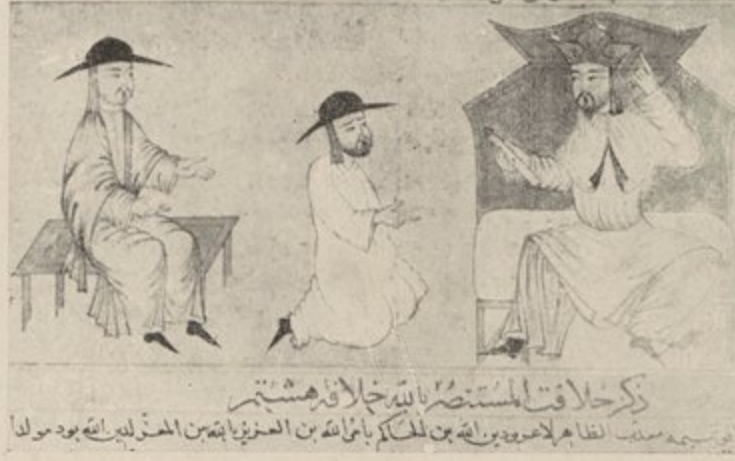 ذكر خلافت المستنصر بالله خلافة هشتم
الظاهر لاعزاز دين الله بن الحاكم بامر الله بن العزيز بالله بن المعز لدين الله بود مولد